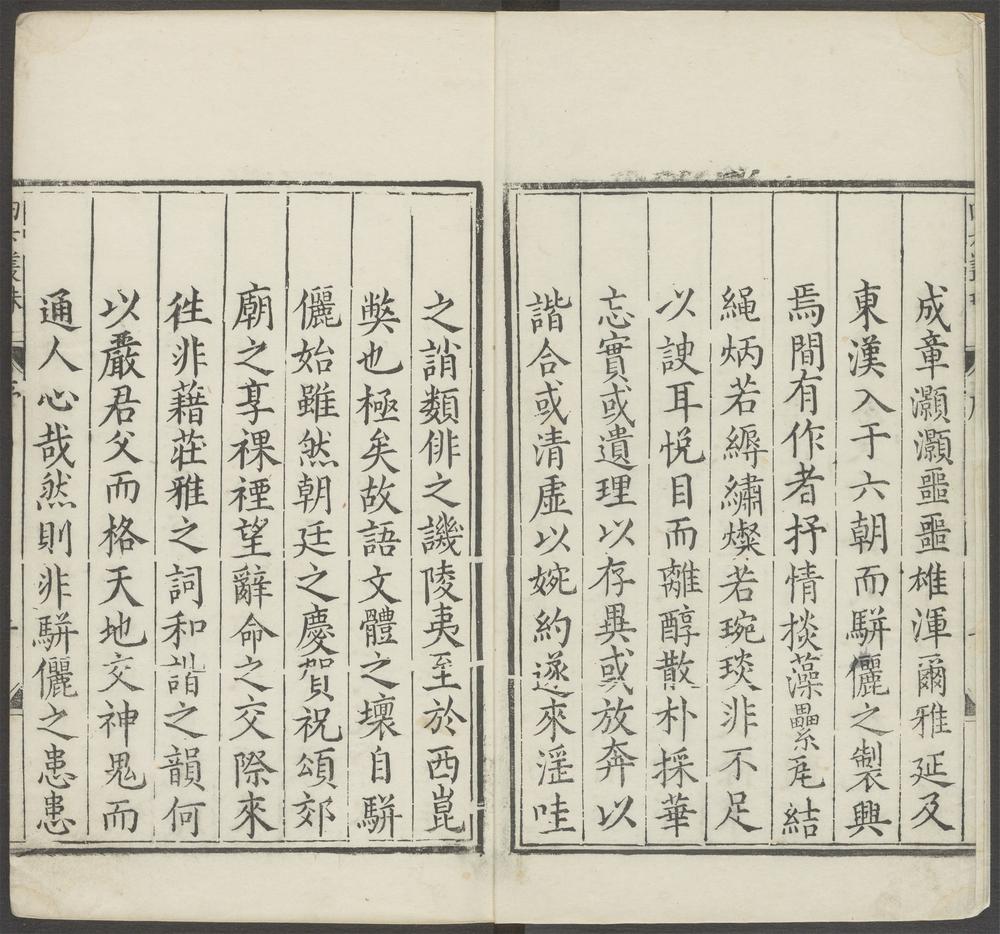 成章灝灝噩噩雄渾爾雅延及
東漢入于六朝而駢儷之製興
焉間有作者抒情掞藻纍尾結
繩炳若縟繡燦若琬琰非不足
以諛耳悅目而離醇散朴採華
忘實或遺理以存異或放奔以
諧合或清虛以婉約遂來滛哇
之誚類俳之譏陵夷至於西崑
獘也極矣故語文體之壞自駢
儷始雖然朝廷之慶賀祝頌郊
廟之享祼禋望辭命之交際來
徃非藉莊雅之詞和諧之韻何
以嚴君父而格天地交神鬼而
通人心哉然則非駢儷之患患